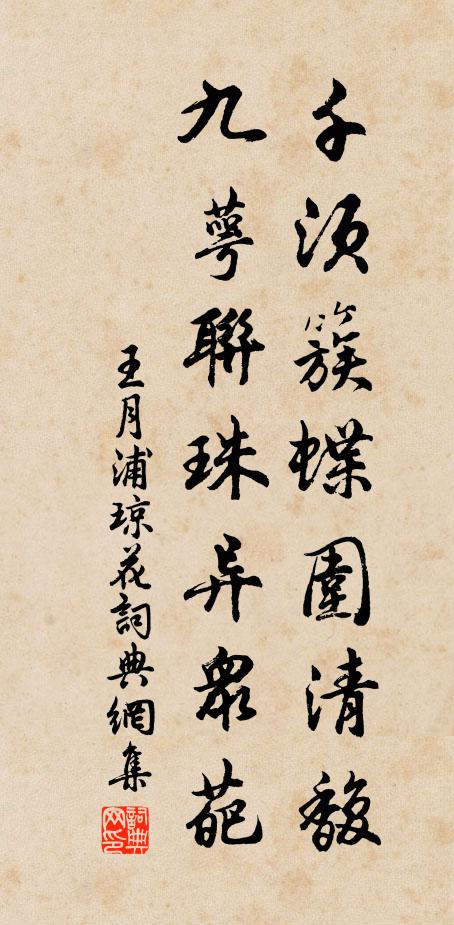 千须簇蝶圍清馥
九萼聯珠异衆葩
王月浦琼花詞典網集
詞典网印